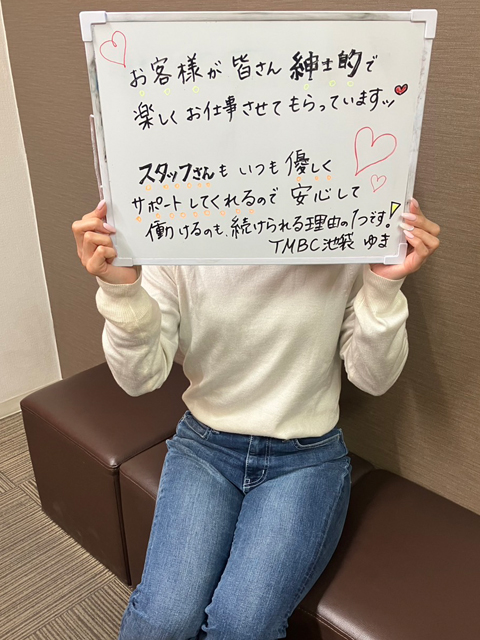 お客様が皆さん紳士的で
楽しくお仕事させてもらっていますッ
スタッフさんもいつも優しく
サポートしてくれるので安心して
働けるのも、続けられる理由の1つです!
TMBC池袋 ゆま